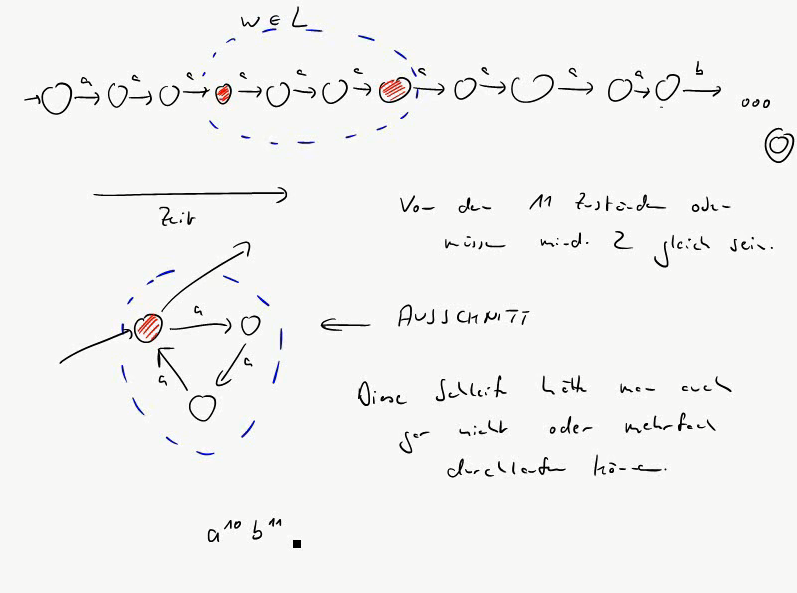 w ∈ L
a a a a a a a a a a b
...
Zeit
Von den 11 Zuständen oben
müssen mind. 2 gleich sein.
a
a
a
← AUSSCHNITT
Diese Schleife hätte man auch
gar nicht oder mehrfach
durchlaufen können.
a¹⁰ b¹¹